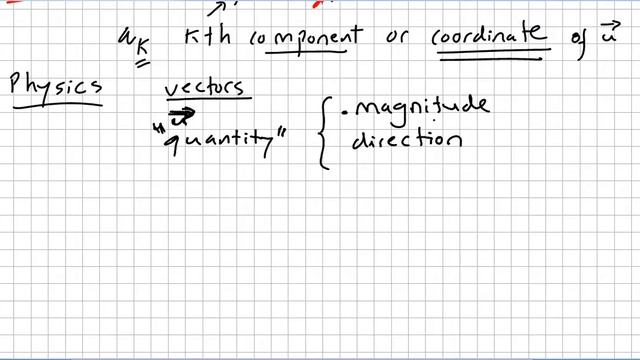 aₖ kth component or coordinate of u⃗
Physics vectors
u⃗
"quantity" { . magnitude
direction